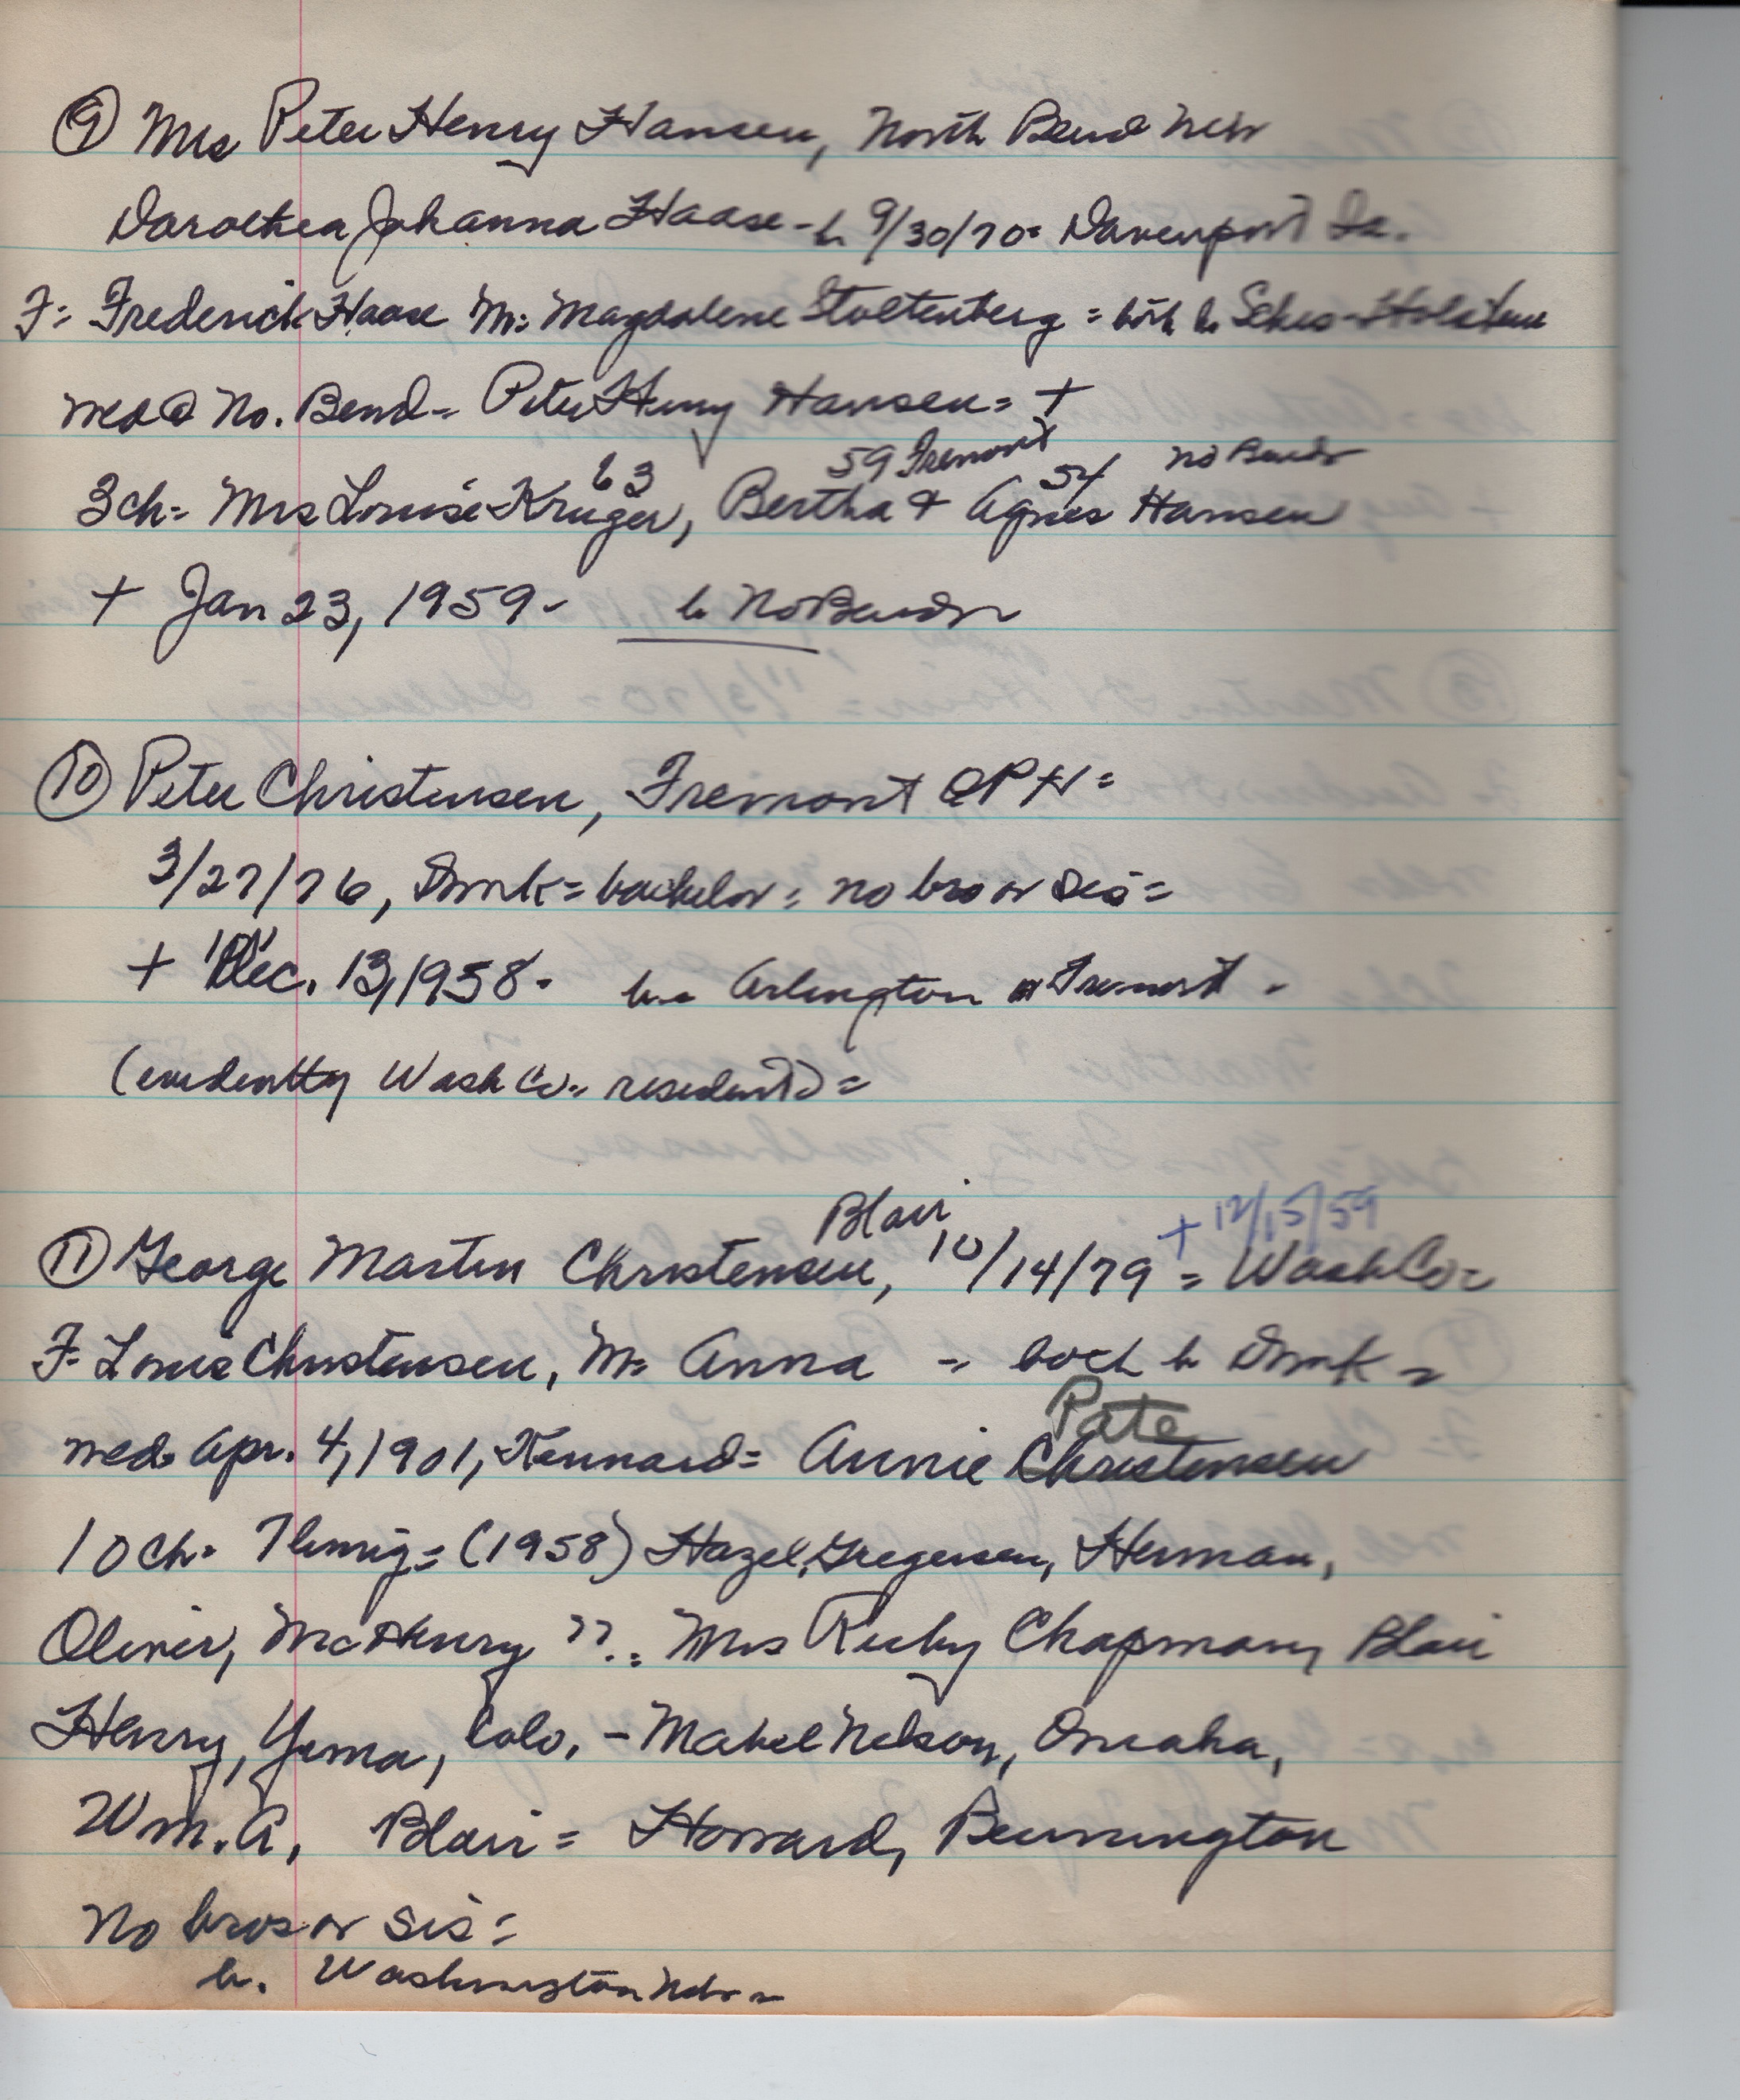 ⑨ Mrs Peter Henry Hansen, North Bend Nebr
Dorothea Johanna Haase - b. 9/30/70 = Davenport Ia.
F= Frederick Haase M= Magdalene Stoltenberg = both b. Schles-Holstein
med @ No. Bend = Peter Henry Hansen = +
63 59 Fremont 54 No Bend
3 ch= Mrs Louise Kruger, Bertha & Agnes Hansen
+ Jan 23, 1959 - b. No Bend
⑩ Peter Christensen, Fremont OPH =
3/27/76, Dmrk = bachelor = no bro or sis =
+ Dec. 13, 1958 - b. - Arlington or Fremont -
(evidently Wash Co. resident) =
Blair + 12/15/59
⑪ George Martin Christensen, 10/14/79 = Wash Co =
F= Louis Christensen, M= Anna - both b Dmrk =
Pate
med. Apr. 4, 1901, Kennard = Annie Christensen
10 ch= 7 living = (1958) Hazel Gregersen, Herman,
Oliver, McHenry ??.= Mrs Ruby Chapman, Blair
Henry, Yuma, Colo, - Mabel Nelson, Omaha,
Wm. A, Blair = Howard, Bennington
No bros or sis =
b. Washington Nebr =